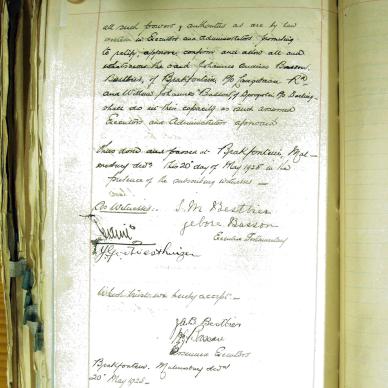 all such powers & authorities as are by law
vested in Executors and Administrators promising
to ratify, approve confirm and allow all and
whatsoever the said Johannes
Bestbier, of Brakfontein, P/o
and Willem Johannes Basson, of P/o Darling
shall do in their capacity as said assumed
Executors and Administrators aforesaid
Thus done and passed at Brakfontein, Mal-
mesbury this 20th day of May 1925 in the
presence of the subscribing witnesses —
As Witnesses:— S. M. Bestbier
gebore Basson
Executrix Testamentary
Which trust we hereby accept —
Bestbier
Basson
Assumed Executors
Brakfontein Malmesbury
20th May 1925 —